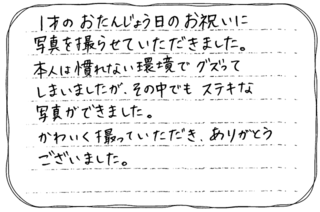 1才の おたんじょう日の お祝いに
写真を撮らせていただきました。
本人は慣れない環境で グズって
しまいましたが、その中でも ステキな
写真ができました。
かわいく撮っていただき、ありがとう
ございました。